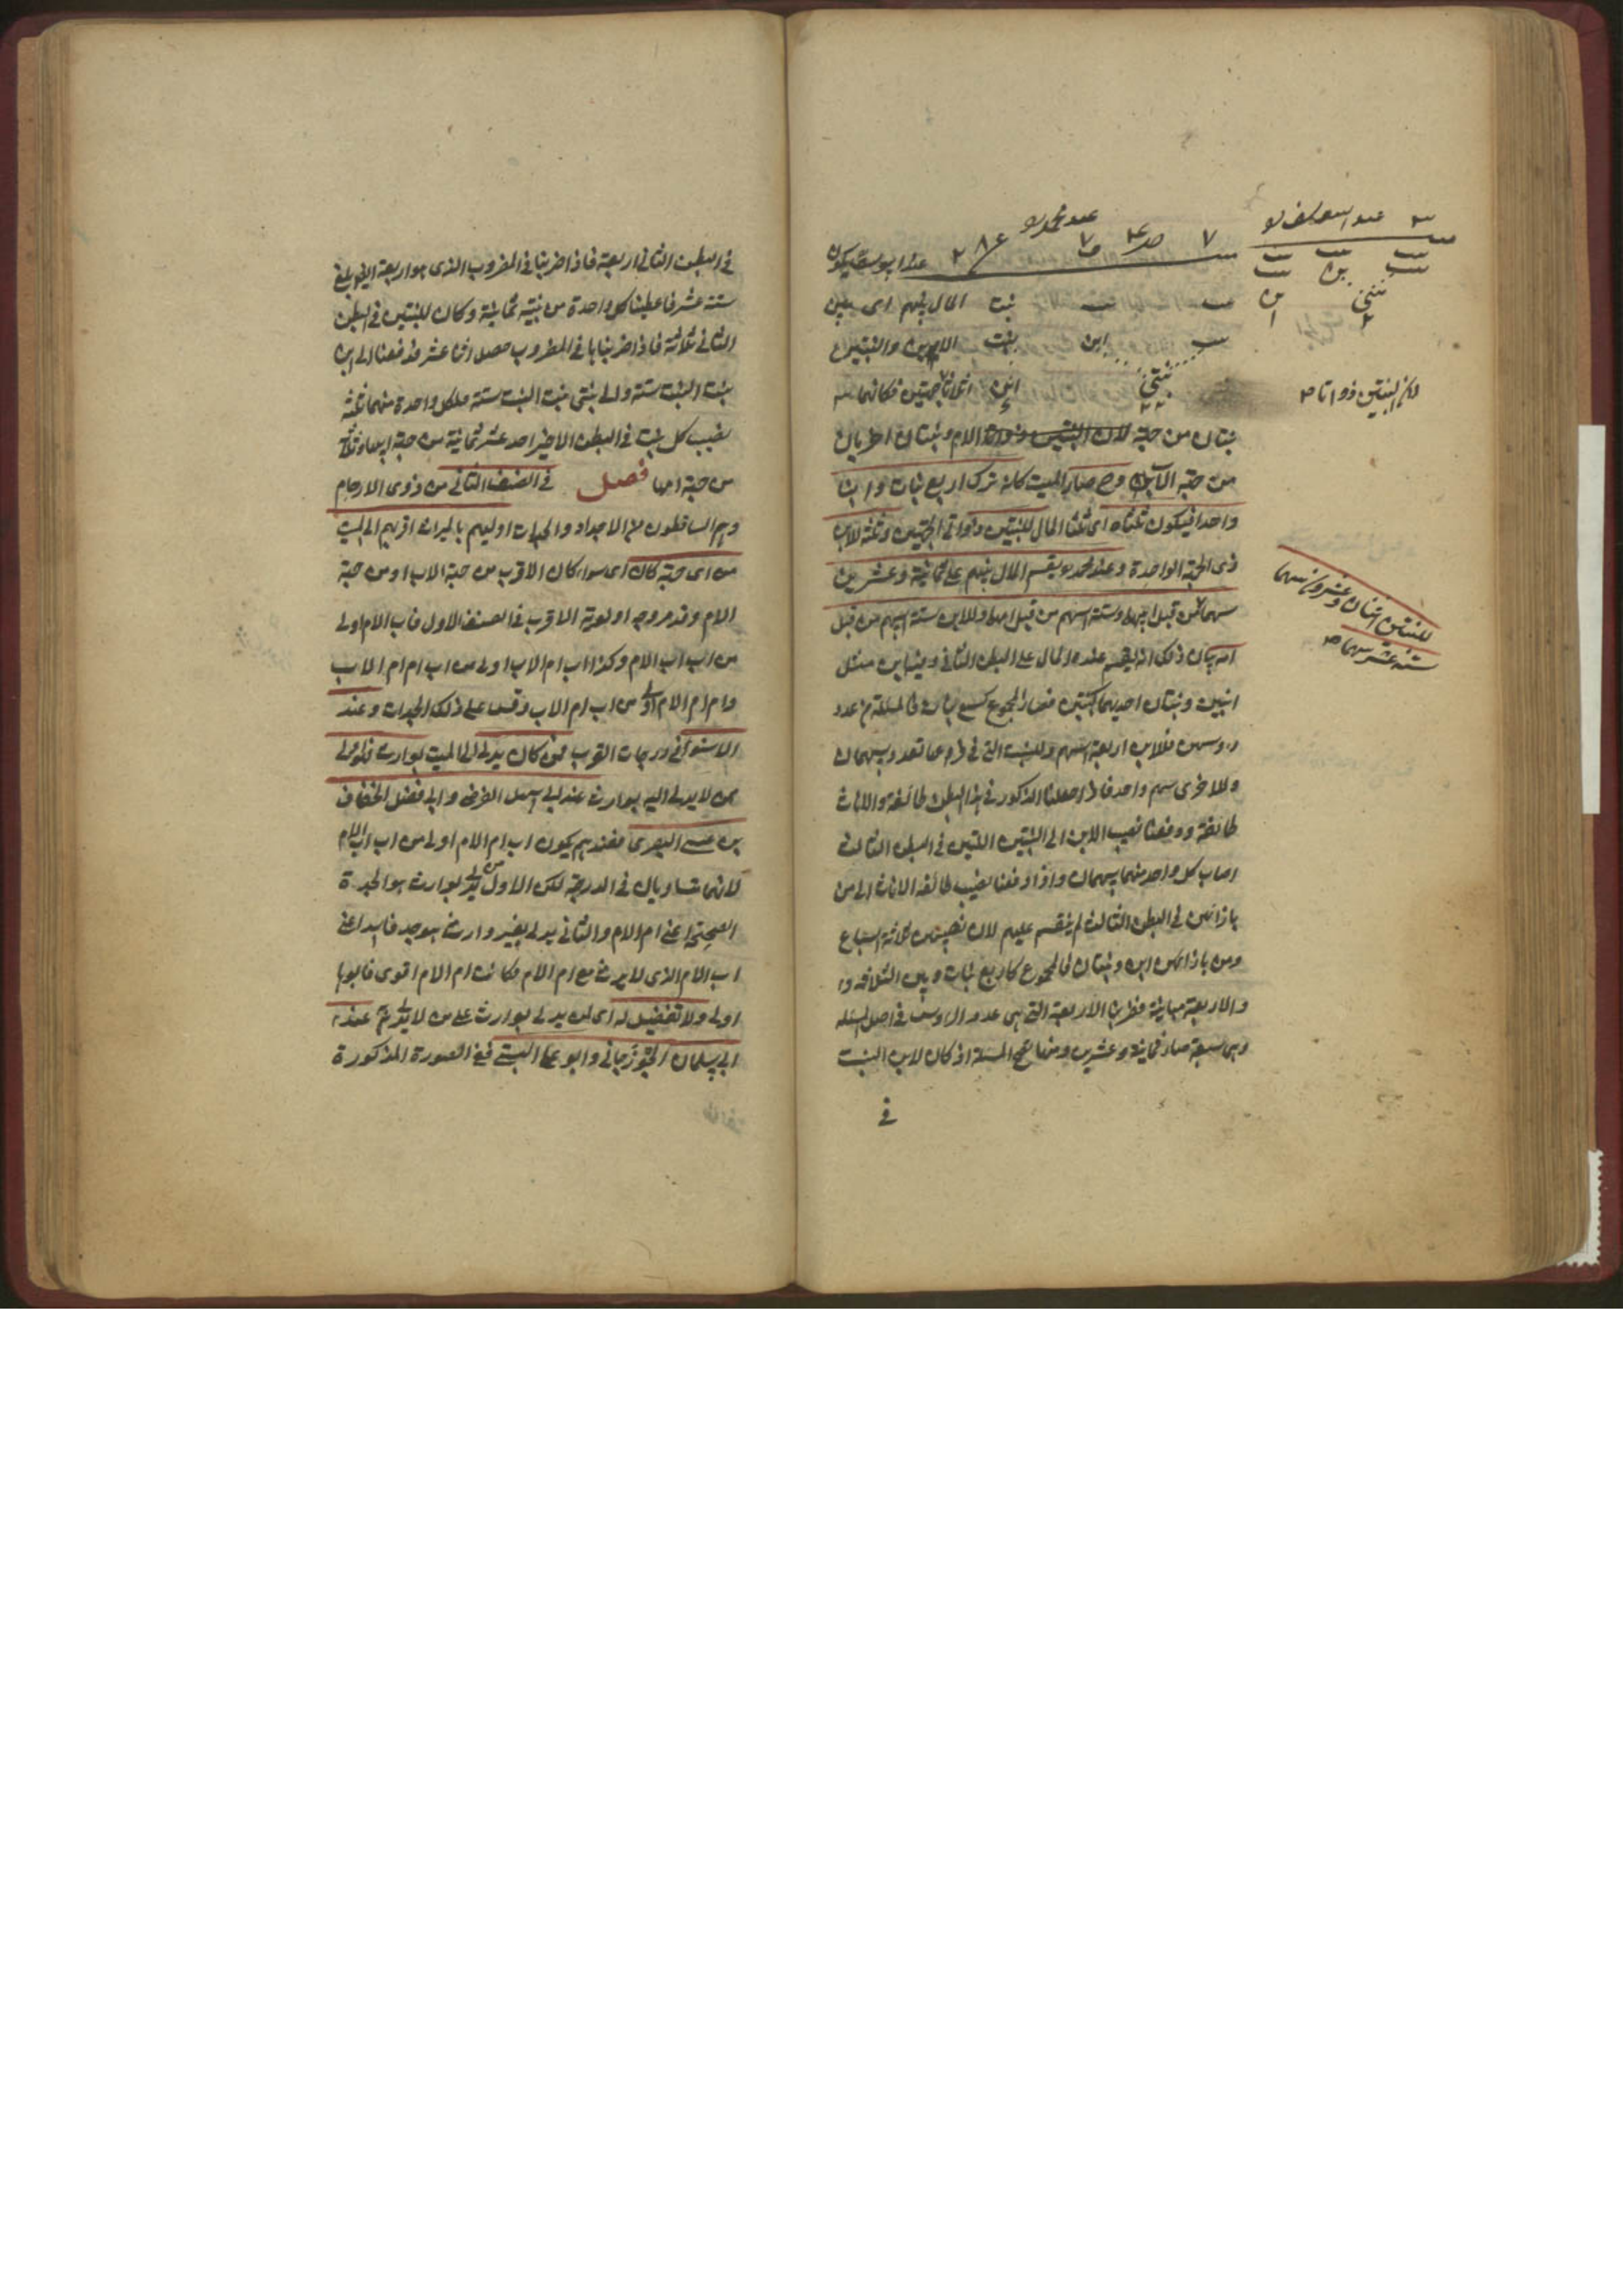 عند ابى يوسف
عند محمد
عند ابى يوسف يكون
بنت بنت بنت المال بينهم اى بين
بنت ابن بنت الابن والبنتين
بنتى ابن اثلاثا
لان البنتين ذواتا
بنتان من جهة الام وبنتان اخريان
من جهة الاب وح صار الميت كانه ترك اربع بنات وابنا
واحدا فيكون ثلثاه اى ثلثا المال للبنتين ذواتى الجهتين وثلثه للابن
ذى الجهة الواحدة وعند محمد يقسم المال بينهم على ثمانية وعشرين
للبنتين اثنان وعشرون سهما
ستة عشر سهما
سهما من قبل ابيهما وستة اسهم من قبل امهما وللابن ستة اسهم من قبل
امه بيان ذلك انه يقسم عنده المال على البطن الثانى وفيه ابن مثل
ابنين وبنتان احديهما كبنتين فصار المجموع كسبع بنات فالمسئلة من عدد
رؤسهن فللابن اربعة اسهم وللبنت التى فى فرعها تعدد سهمان
وللاخرى سهم واحد فاذا جعلنا الذكور فى هذا البطن طائفة والاناث
طائفة ودفعنا نصيب الابن الى البنتين اللتين فى البطن الثالث
اصاب كل واحد منهما سهمان واذا دفعنا نصيب طائفة الاناث الى من
بازائهن فى البطن الثالث لم ينقسم عليهم لان نصيبهن ثلاثة اسباع
ومن بازائهن ابن وبنتان فالمجموع كاربع بنات وبين الثلاثة
والاربعة مباينة فضربنا الاربعة التى هى عدد الرؤس فى اصل المسئلة
وهى سبعة صار ثمانية وعشرين ومنها تصح المسئلة اذ كان لابن البنت
فى
فى البطن الثانى اربعة فاذا ضربناها فى المضروب الذى هو اربعة ايضا بلغ
ستة عشر فاعطينا كل واحدة من بنتيه ثمانية وكان للبنتين فى البطن
الثانى ثلاثة فاذا ضربناها فى المضروب حصل اثنا عشر فدفعنا الى ابن
بنت البنت ستة والى بنتى بنت البنت ستة فلكل واحدة منهما ثلثة
نصيب كل بنت فى البطن الاخير احد عشر ثمانية من جهة ابيها وثلثة
من جهة امها فصل فى الصنف الثانى من ذوى الارحام
وهم الساقطون من الاجداد والجدات اوليهم بالميراث اقربهم الى الميت
من اى جهة كان اى سواء كان الاقرب من جهة الاب او من جهة
الام وقد مر وجه اولوية الاقرب فى الصنف الاول فاب الام اولى
من اب اب الام وكذا اب ام الاب اولى من اب ام ام الاب
وام ام الام اولى من اب ام الاب وقس على ذلك الجدات وعند
الاستواء فى درجات القرب فمن كان يدلى الى الميت بوارث فهو اولى
ممن لا يدلى اليه بوارث عند ابى سهل الفرضى وابى فضل الخفاف
بن عيسى البصرى فعندهم يكون اب ام الام اولى من اب اب الام
لانهما متساويان فى الدرجة لكن الاول يدلى بوارث هو الجدة
الصحيحة اعنى ام الام والثانى يدلى بغير وارث هو جد فاسد اعنى
اب الام الذى لا يرث مع ام الام فكانت ام الام اقوى فابوها
اولى ولا تفضيل له اى لمن يدلى بوارث على من لا يدلى به عند
ابى سليمان الجوزجانى وابو على البستى ففى الصورة المذكورة